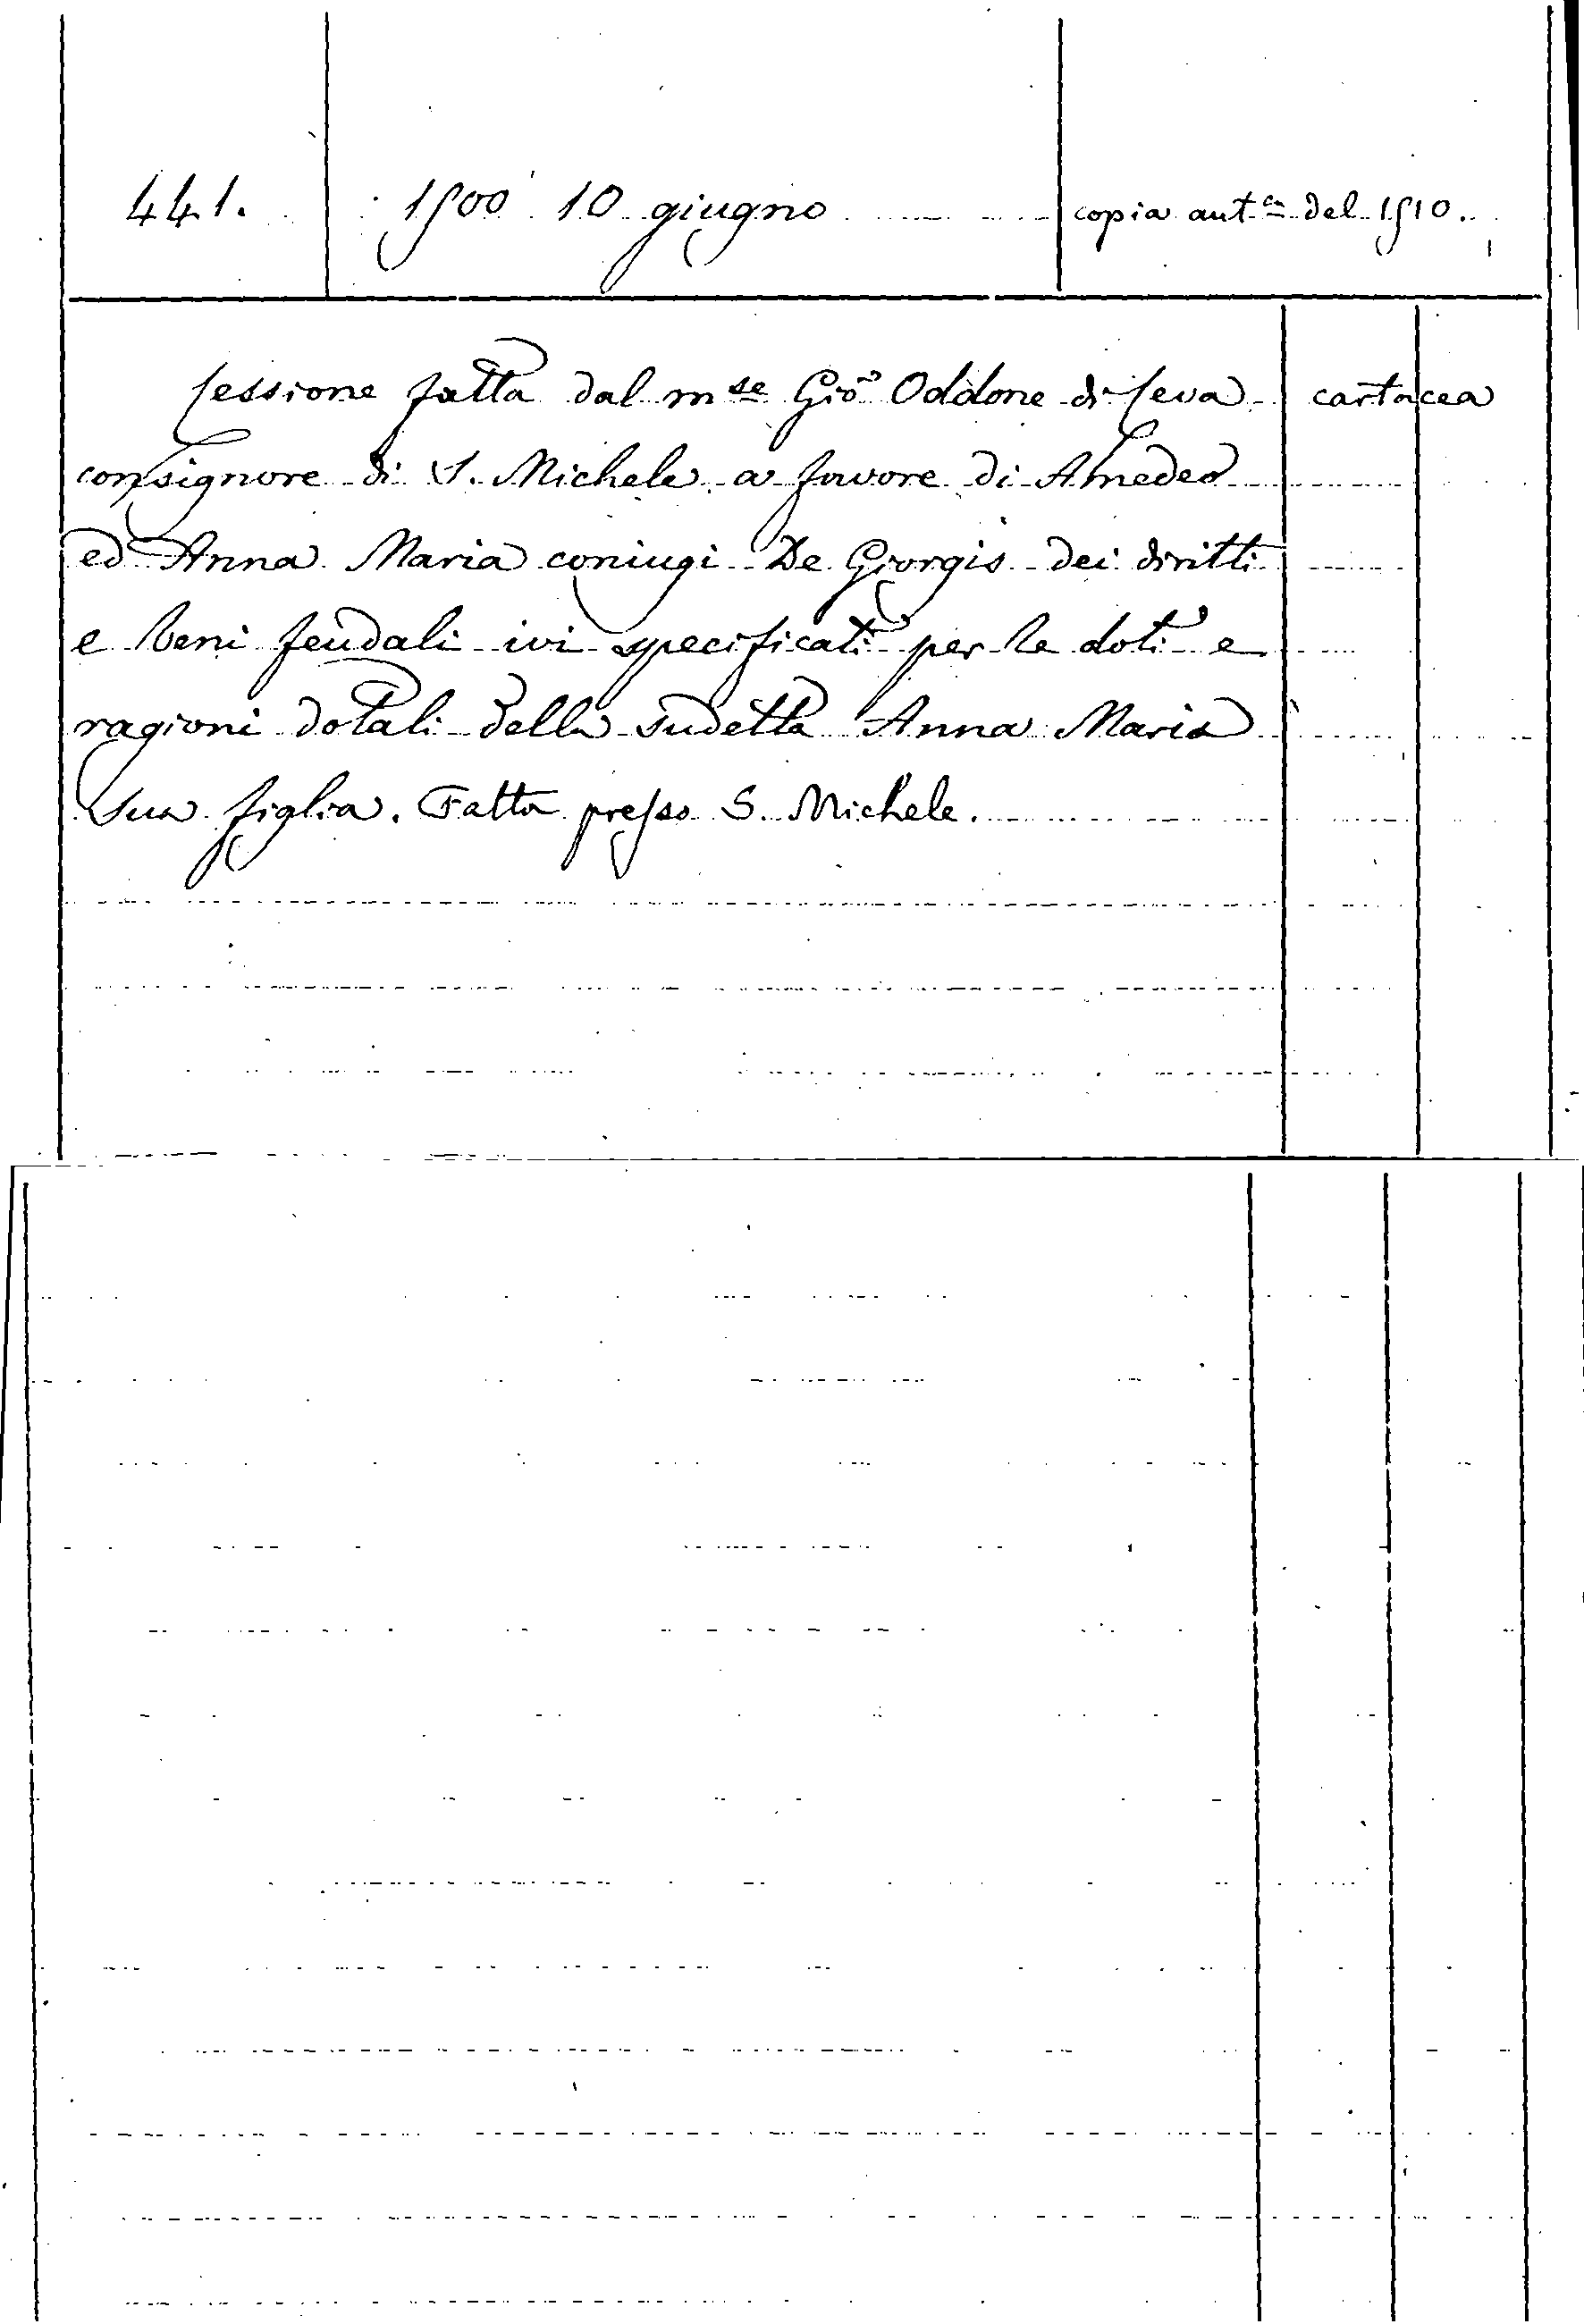 441.
1500 10 giugno
copia aut.ca del 1510.
Cessione fatta dal m.se Gio Oddone di Ceva
cartacea
consignore di S. Michele a favore di Amedeo
ed Anna Maria coniugi De Giorgis dei diritti
e beni feudali ivi specificati per le doti e
ragioni dotali della sudetta Anna Maria
sua figlia. Fatta presso S. Michele.